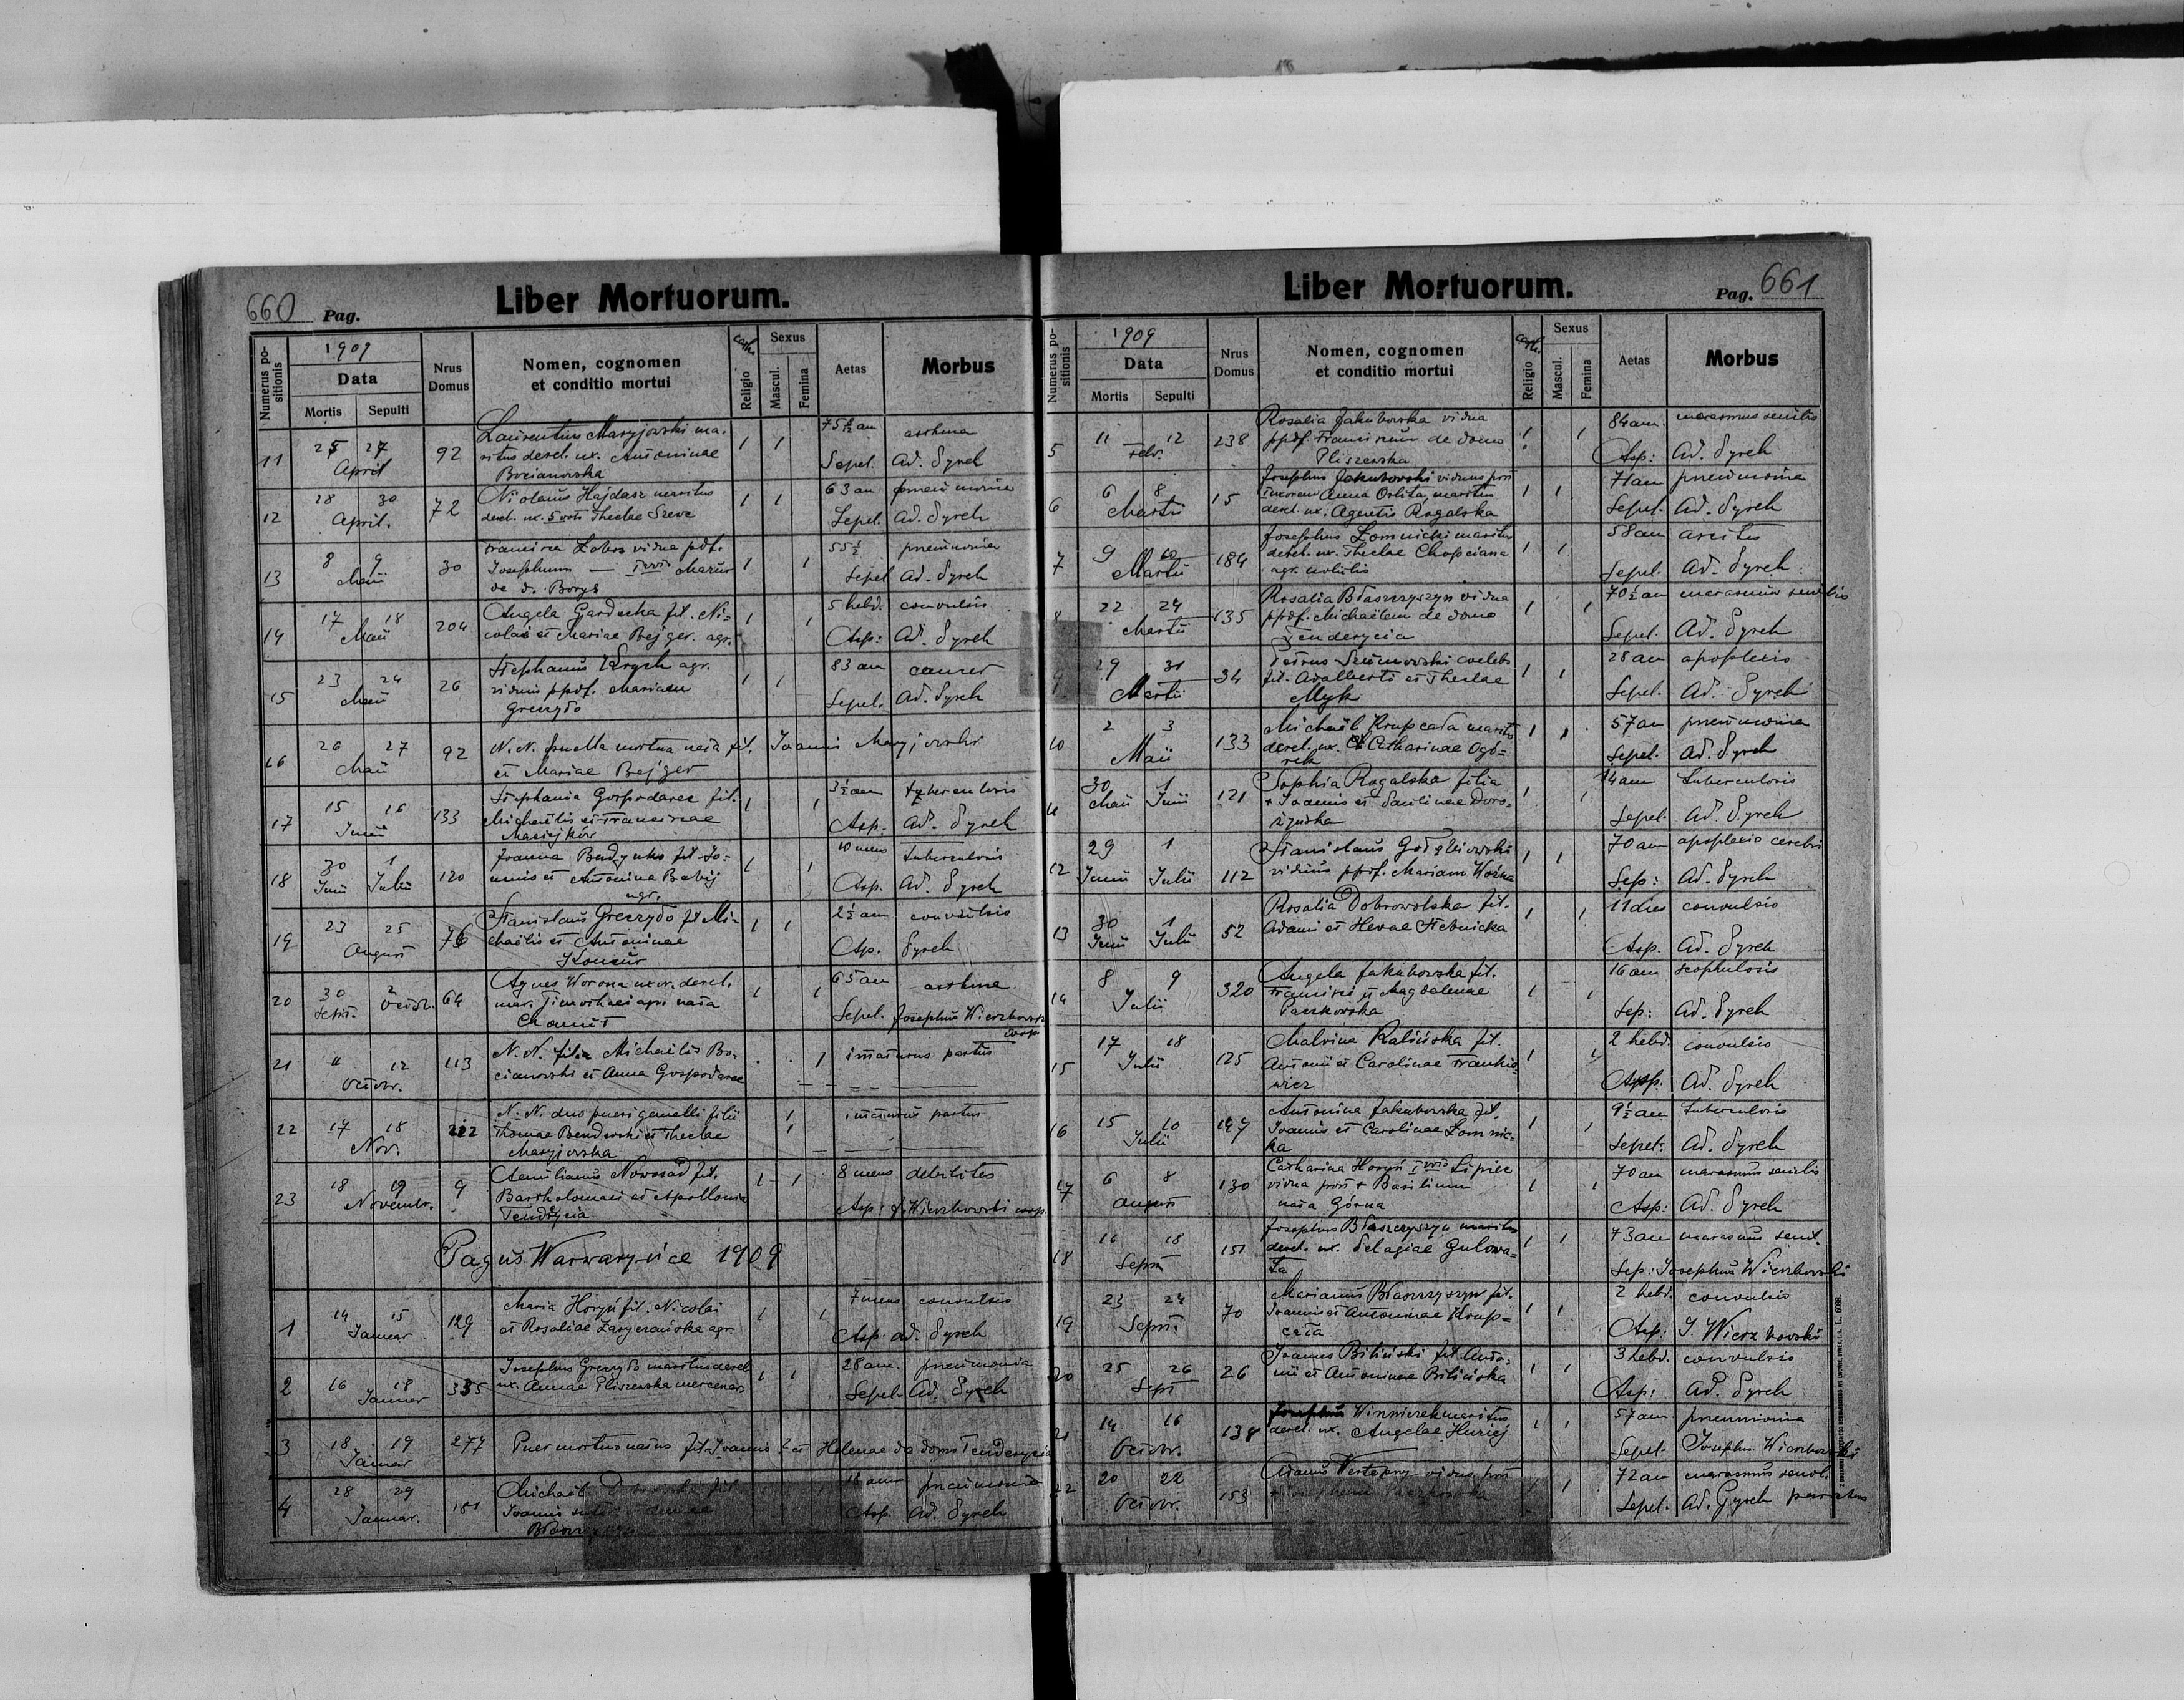 660 Pag.
Liber Mortuorum.
Numerus positionis
1909
Data
Mortis Sepulti
Nrus Domus
Nomen, cognomen
et conditio mortui
cath.
Religio
Sexus
Mascul.
Femina
Aetas
Morbus
11 25 27 April 92
Laurentius Maryjowski ma-
ritus derel. ux. Antoninae
Bocianowska
1 1 75 ½ an asthma
Sepel. Ad. Gyrch
12 28 30 April. 72
Nicolaus Hajdasz maritus
derel. ux. Theclae Szewc
1 1 63 an pneumonia
Sepel. Ad. Gyrch
13 8 9 Maii 30
Francisca Zobos vidua pdf.
Josephum — I voti Mazur
de d. Borys
1 1 55 ½ pneumonia
Sepel Ad. Gyrch
14 17 18 Maii 204
Angela Garducha fil. Ni-
colai et Mariae Bejger. agr.
1 1 5 hebd. convulsis
Asp: Ad. Gyrch
15 23 24 Maii 26
Stephanus agr.
viduus ppdf. Mariam
Greszydo
1 1 83 an cancer
Sepel. Ad. Gyrch
16 26 27 Maii 92
N. N. puella mortua nata fil. Joannis Maryjowski
et Mariae Bejger
17 15 16 Junii 133
Stephania Gospodarec fil.
Michaëlis et Franciscae
Maziejków
1 1 3 ½ an tuberculosis
Asp. Ad. Gyrch
18 30 Junii 1 Julii 120
Joanna fil. Jo-
annis et Antonina Babij
agr.
1 1 10 mens tuberculosis
Asp. Ad. Gyrch
19 23 25 August 76
Stanislaus Greszydo fil Mi-
chaëlis et Antoninae
1 1 2 ½ an convulsio
Asp. Gyrch
20 30 Sept. 2 Octobr. 64
Agnes Worona uxor. derel.
mar. Timothaei agri nata
Chomut
1 1 65 an asthma
Sepel. Josephus Wierzbowski
coop.
21 " 12 Octobr. 113
N. N. filia Michaëlis Bo-
cianowski et Anna Gospodarec
1 immaturus partus
22 17 18 Nov. 212
N. N. duo pueri gemelli filii
Thomae Bendowski et Theclae
Maryjowska
1
1 immaturus partus
23 18 19 Novembr. 9
Aemilianus Nowosad fil.
Bartholomaei et Apollonia
Tendycia
1 1 8 mens debilitas
Asp: J. Wierzbowski coop.
Pagus Warwaryńce 1909
1 14 15 Januar 129
Maria Horyń fil. Nicolai
et Rosaliae agr.
1 1 7 mens convulsio
Asp. ad. Gyrch
2 16 18 Januar 335
Josephus Greszydo maritus derel
ux. Annae Pliszewska mercenar.
1 1 28 ann. pneumonia
Sepel. Ad. Gyrch
3 18 19 Januar 277
Puer mortuo natus fil. Joannis et Helenae de domo Tenderycia
4 28 29 Januar. 181
Michaël
Joannis
18 ann pneumonia
Asp. Ad. Gyrch
Liber Mortuorum.
Pag. 661
Numerus positionis
1909
Data
Mortis Sepulti
Nrus Domus
Nomen, cognomen
et conditio mortui
cath.
Religio
Sexus
Mascul.
Femina
Aetas
Morbus
5 11 12 Febr. 238
Rosalia Jakubowska vidua
ppdf. Franciscum de domo
Pliszewska
1 1 84 ann. marasmus senilis
Asp: Ad. Gyrch
6 6 8 Martii 15
Josephus Jakubowski viduus post
I uxorem Anna Orlita, maritus
derel. ux. Agnetis Rogalska
1 1 71 an pneumonia
Sepel. Ad. Gyrch
7 9 10 Martii 184
Josephus Łomnicki maritus
derel. ux. Theclae Chopciana
agr. nobilis
1 1 58 an
Sepel. Ad. Gyrch
8 22 24 Martii 135
Rosalia Błaszczyszyn vidua
ppdf. Michaëlem de domo
Tenderycia
1 1 70 ½ an marasmus senilis
Sepel. Ad. Gyrch
9 29 31 Martii 34
Petrus coelebs
fil. Adalberti et Theclae
Myk
1 1 28 an apoplexio
Sepel. Ad. Gyrch
10 2 3 Maii 133
Michaël Krupcała maritus
derel. ux. Catharinae Ogó-
rek
1 1 57 an pneumonia
Sepel. Ad. Gyrch
11 30 Maii 1 Junii 121
Sophia Rogalska filia
+ Joannis et Paulinae Doro-
żyńska
1 1 14 ann tuberculosis
Sepel. Ad. Gyrch
12 29 Junii 1 Julii 112
Stanislaus
viduus ppdf. Mariam Woźna
1 1 70 an apoplexio cerebri
Sep: Ad. Gyrch
13 30 Junii 1 Julii 52
Rosalia Dobrowolska fil.
Adami et Hevae Stebnicka
1 1 11 dies convulsio
Asp. Ad. Gyrch
14 8 9 Julii 320
Angela Jakubowska fil.
Francisci et Magdalenae
Paczkowska
1 1 16 an scophulosis
Sep: Ad. Gyrch
15 17 18 Julii 125
Malvina Kalińska fil.
Antonii et Carolinae Frankie-
wicz
1 1 2 hebd. convulsio
Asp. Ad. Gyrch
16 15 10 Julii 197
Antonina Jakubowska fil.
Joannis et Carolinae Łomnic-
ka
1 1 9 ½ an tuberculosis
Sepel. Ad. Gyrch
17 6 8 August 130
Catharina Horyń I voto Lipiec
vidua post + Basilium
nata Górna
1 1 70 an marasmus senilis
Asp: Ad. Gyrch
18 16 18 Septm 151
Josephus Błaszczyszyn maritus
derel. ux. Pelagiae Gulowa-
ta
1 1 73 an marasmus senil.
Sep: Josephus Wierzbowski
19 23 24 Septm 70
Marianus Błaszczyszyn fil.
Joannis et Antoninae Krup-
cała
1 1 2 hebd. convulsio
Asp: J. Wierzbowski
20 25 26 Sept 26
Joannes Biliński fil. Anto-
nii et Antoninae Bilińska
1 1 3 hebd. convulsio
Asp: Ad. Gyrch
21 14 16 Octobr. 138
Josephus Winniczek maritus
derel. ux. Angelae Huziej
1 1 57 ann pneumonia
Sepel. Josephus Wierzbowski
22 20 22 Octobr. 153
Adamus vidus post
1 1 72 an marasmus senil.
Sepel. Ad. Gyrch parochus